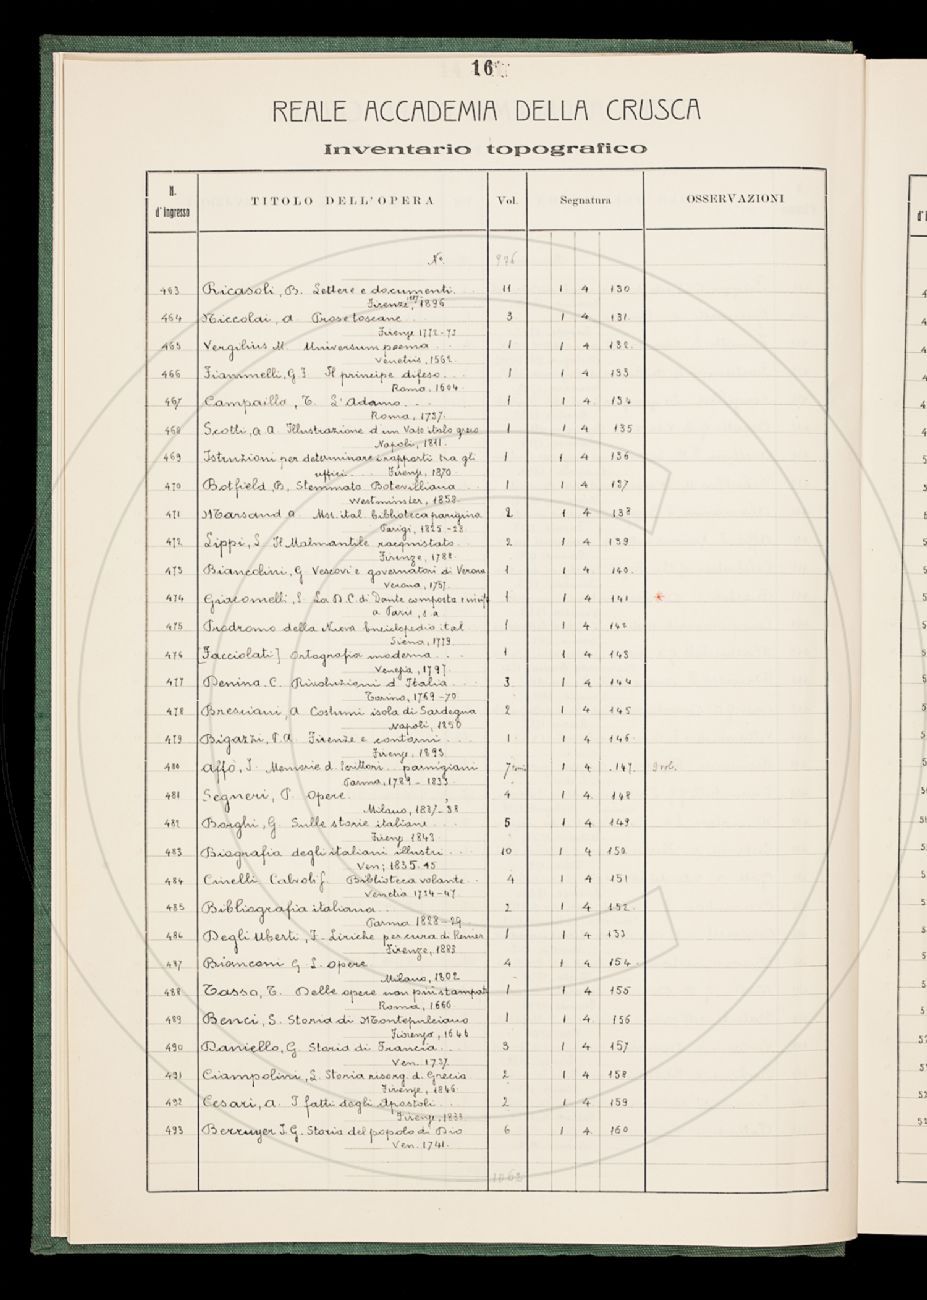 16
REALE ACCADEMIA DELLA CRUSCA
Inventario topografico
N. d'Ingresso TITOLO DELL'OPERA Vol. Segnatura OSSERVAZIONI
N.
463 Ricasoli, B. Lettere e documenti. 11 1 4 130
Firenze, 1896
464 Niccolai, A. Prose toscane 3 1 4 131
Firenze 1772-73
465 Vergilius M. Universum poema 1 1 4 132
Venetiis, 1562
466 Fiammelli, G. F. Il principe difeso 1 1 4 133
Roma, 1604
467 Campailla, T. L'Adamo 1 1 4 134
Roma, 1737
468 Scotti, A. A. Illustrazione d'un Vaso italo greco 1 1 4 135
Napoli, 1811.
469 Istruzioni per determinare i rapporti tra gli 1 1 4 136
uffici Firenze, 1870
470 Botfield, B. Stemmata Botevilliana 1 1 4 137
Westminster, 1858
471 Marsand A. Mss. ital. biblioteca parigina 2 1 4 138
Parigi, 1835-38
472 Lippi, L. Il Malmantile racquistato 2 1 4 139
Firenze, 1788
473 Biancolini, G. Vescovi e governatori di Verona 1 1 4 140
Verona, 1757
474 Giacomelli, L. La D. C. di Dante composta 1 1 4 141 *
a Paris, s. a.
475 Prodromo della Nuova Enciclopedia ital. 1 1 4 142
Siena, 1779
476 [Facciolati] Ortografia moderna 1 1 4 143
Venezia, 1797
477 Denina, C. Rivoluzioni d'Italia 3 1 4 144
Torino, 1769-70
478 Bresciani, A. Costumi isola di Sardegna 2 1 4 145
Napoli, 1850
479 Bigazzi, P. A. Firenze e contorni 1 1 4 146
Firenze, 1893
480 Affò, I. Memorie d. Scrittori parmigiani 7 tomi 1 4 147 9 vol.
Parma, 1789-1833
481 Segneri, P. Opere. 4 1 4 148
Milano, 1837-38
482 Borghi, G. Sulle storie italiane 5 1 4 149
Firenze 1843
483 Biografia degli italiani illustri 10 1 4 150
Ven; 1835-45
484 Cinelli Calvoli G. Biblioteca volante 4 1 4 151
Venetia 1734-47
485 Bibliografia italiana 2 1 4 152
Parma 1828-29
486 Degli Uberti, F. Liriche per cura di Renier 1 1 4 153
Firenze, 1883
487 Bianconi G. L. Opere 4 1 4 154
Milano, 1802
488 Tasso, T. Delle opere non più stampate 1 1 4 155
Roma, 1666
489 Benci, S. Storia di Montepulciano 1 1 4 156
Fiorenza, 1646
490 Daniello, G. Storia di Francia 3 1 4 157
Ven. 1737
491 Ciampolini, L. Storia risorg. d. Grecia 2 1 4 158
Firenze, 1846
492 Cesari, A. I fatti degli Apostoli 2 1 4 159
Firenze, 1833
493 Berruyer I. G. Storia del popolo di Dio 6 1 4 160
Ven. 1741.
1062